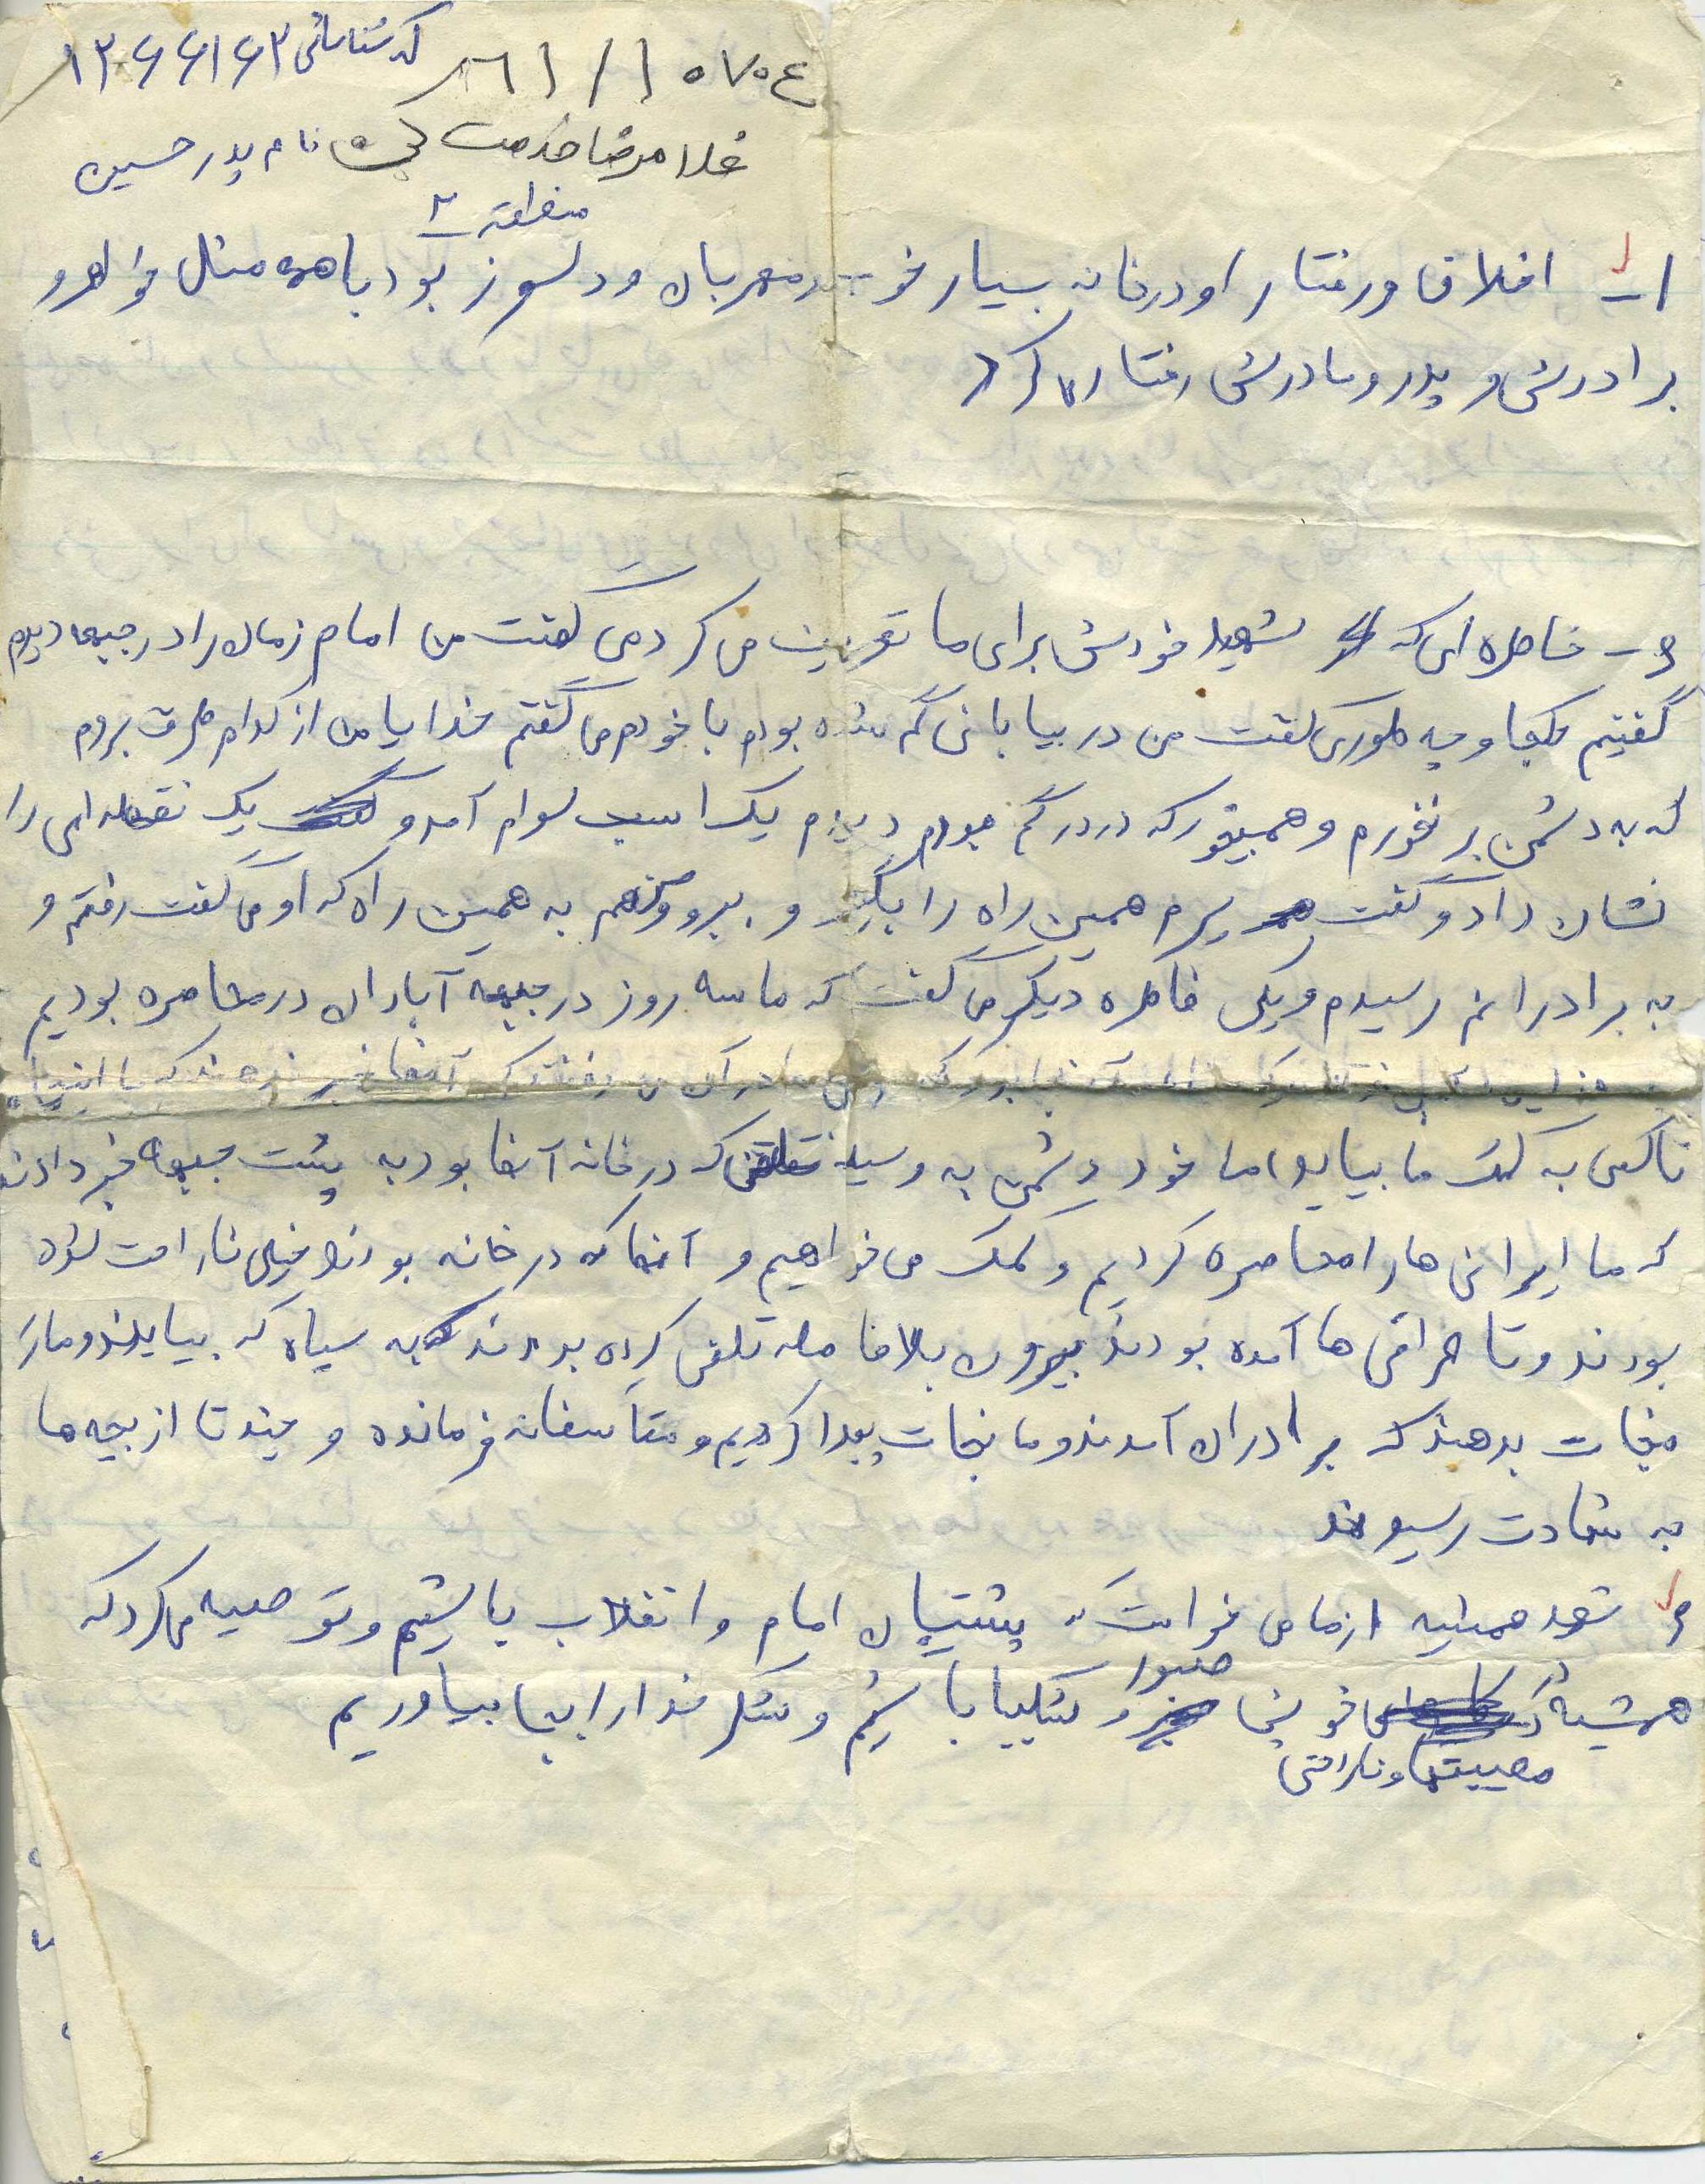 کد شناسائی ۱۲۶۶۱۶۲
۶۱/۱۰۷۰۴
غلامرضا خدمت نام پدر حسین
منطقه ۲
۱- اخلاق و رفتار او در خانه بسیار خوب و مهربان و دلسوز بود با همه مثل خواهر و
برادرش و پدر و مادرش رفتار می کرد
خاطره ای که شهید خودش برای ما تعریف می کرد می گفت من امام زمان را در جبهه دیدم
گفتیم کجا و چه طوری گفت من در بیابانی گم شده بودم با خودم می گفتم خدایا من از کدام طرف بروم
که به دشمن بر نخورم و همینطور که در در گم بودم دیدم یک اسب سوار آمد و یک نقطه ای را
نشان داد و گفت پسرم همین راه را بگیر و برو و من هم به همین راه که او می گفت رفتم و
به برادرانم رسیدم و یکی خاطره دیگر می گفت که ما سه روز در جبهه آبادان در محاصره بودیم
تا کسی به کمک ما بیاید اما خود دشمن به وسیله تلفنی که در خانه آنها بود به پشت جبهه خبر دادند
که ما ایرانی ها را محاصره کردیم و کمک می خواهیم و آنها که در خانه بودند خیلی ناراحت شده
بودند و تا عراقی ها آمده بودند بیرون بلافاصله تلفن کرده بودند به سپاه که بیایند و ما را
نجات بدهند که برادران آمدند و ما نجات پیدا کردیم و متأسفانه فرمانده و چند تا از بچه ها
به شهادت رسیدند
شهید همیشه از ما می خواست که پشتیبان امام و انقلاب باشیم و توصیه می کرد که
همیشه در مصیبتها و ناراحتی صبور و شکیبا باشیم و شکر خدا را بجا بیاوریم